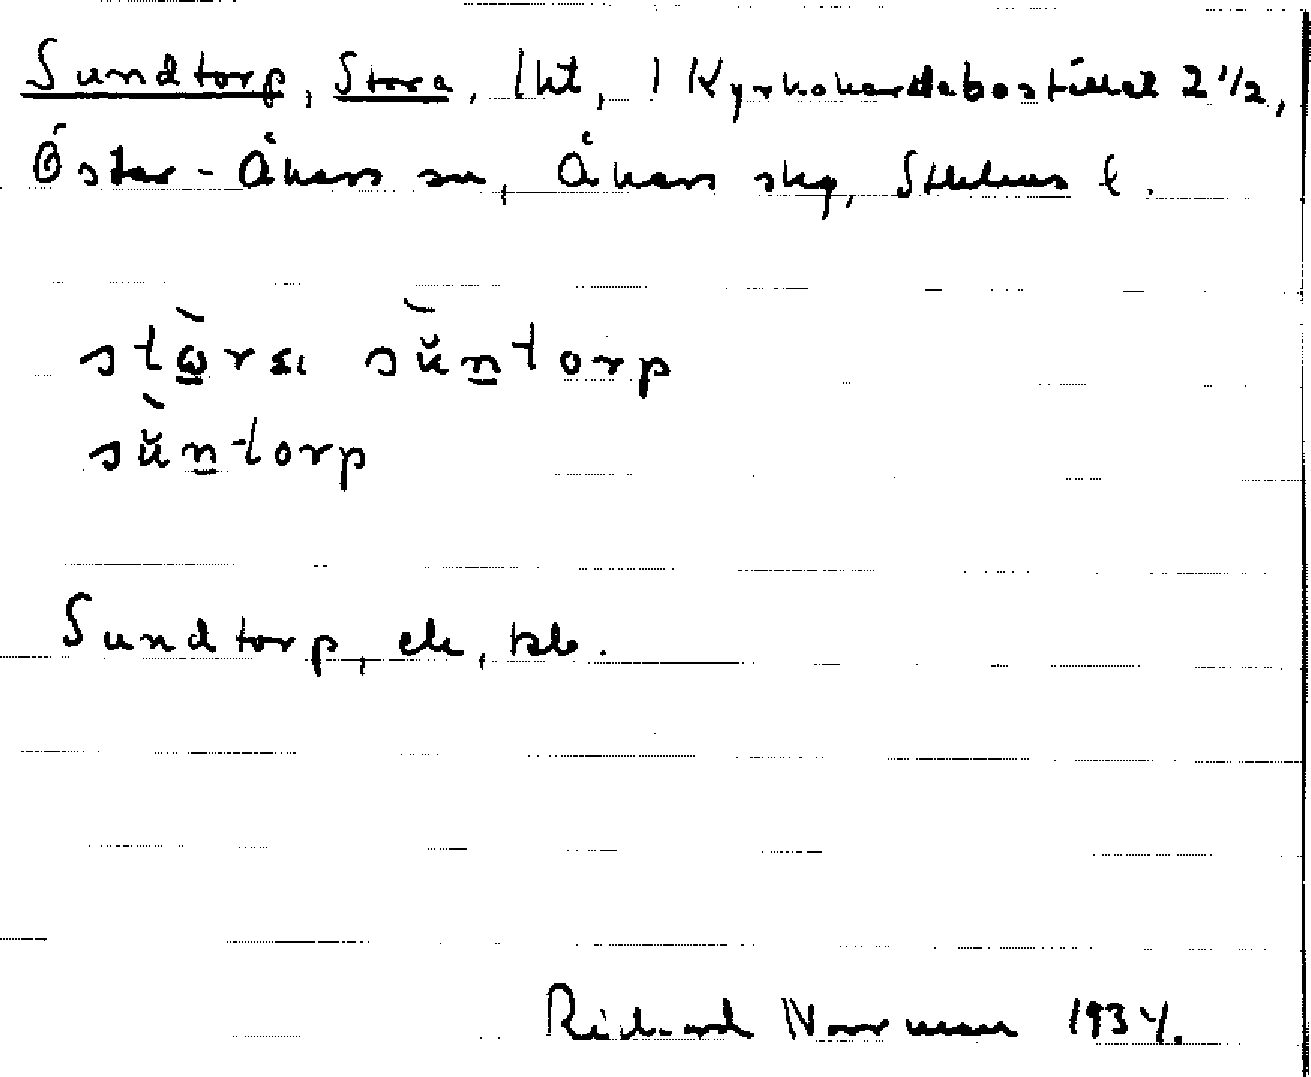 Sundtorp, Stora, lht, 1 Kyrkoherdebostället 2 1/2,
Öster-Åkers sn, Åkers skg, Sthlms l.
stὼra sùntorp
sùntorp
Sundtorp, ek, tab.
Richard Norrman 1934.